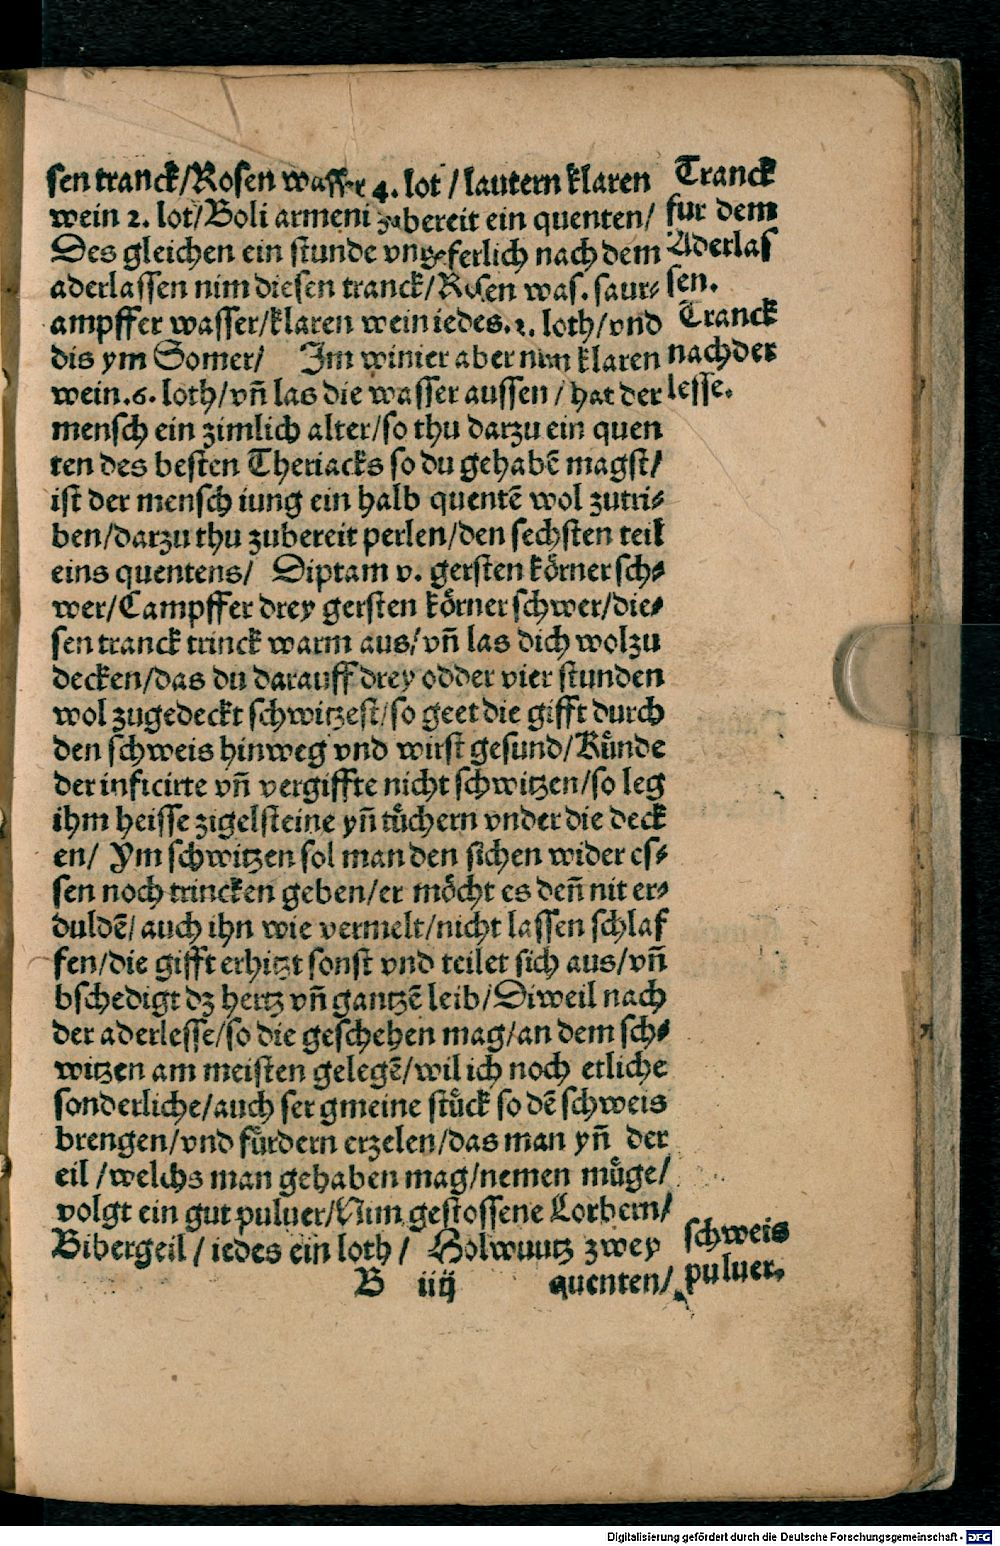 sen tranck/Rosen wasser 4. lot / lautern klaren
wein 2. lot/Boli armeni zubereit ein quenten/
Des gleichen ein stunde vngeferlich nach dem
aderlassen nim diesen tranck/Rosen was. saur⸗
ampffer wasser/klaren wein iedes. 2. loth/vnd
dis ym Somer/ Im winter aber nim klaren
wein .6. loth/vn̄ las die wasser aussen / hat der
mensch ein zimlich alter/so thu darzu ein quen
ten des besten Theriacks so du gehabē magst/
ist der mensch iung ein halb quentē wol zutri⸗
ben/darzu thu zubereit perlen/den sechsten teil
eins quentens/ Diptam v. gersten körner sch⸗
wer/Campffer drey gersten körner schwer/die⸗
sen tranck trinck warm aus/vn̄ las dich wol zu
decken/das du darauff drey odder vier stunden
wol zugedeckt schwitzest/so geet die gifft durch
den schweis hinweg vnd wirst gesund/Kuͤnde
der inficirte vn̄ vergiffte nicht schwitzen/so leg
ihm heisse zigelsteine yn̄ tuͤchern vnder die deck
en/ Ym schwitzen sol man den sichen wider es⸗
sen noch trincken geben/er moͤcht es den̄ nit er⸗
duldē/auch ihn wie vermelt/nicht lassen schlaf
fen/die gifft erhitzt sonst vnd teilet sich aus/vn̄
bschedigt dz hertz vn̄ gantzē leib/Diweil nach
der aderlesse/so die geschehen mag/an dem sch⸗
witzen am meisten gelegē/wil ich noch etliche
sonderliche/auch ser gmeine stuͤck so dē schweis
brengen/vnd fuͤrdern erzelen/das man yn̄ der
eil /welchs man gehaben mag/nemen muͤge/
volgt ein gut puluer/Nim gestossene Lorbern/
Bibergeil / iedes ein loth / Holwurtz zwey
B iiij quenten/
Tranck
fur dem
Aderlas
sen.
Tranck
nach der
lesse.
schweis
puluer.
Digitalisierung gefördert durch die Deutsche Forschungsgemeinschaft - DFG